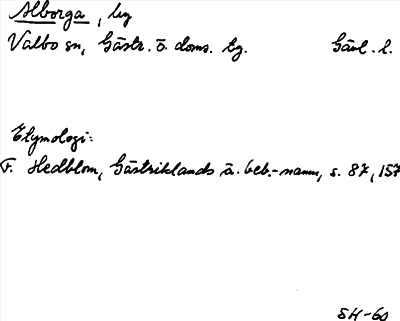 Alborga, by
Valbo sn, Gästr. ö. doms. tg. Gävl. l.
Etymologi:
F. Hedblom, Gästriklands ä. beb.-namn, s. 87, 157
SH-60